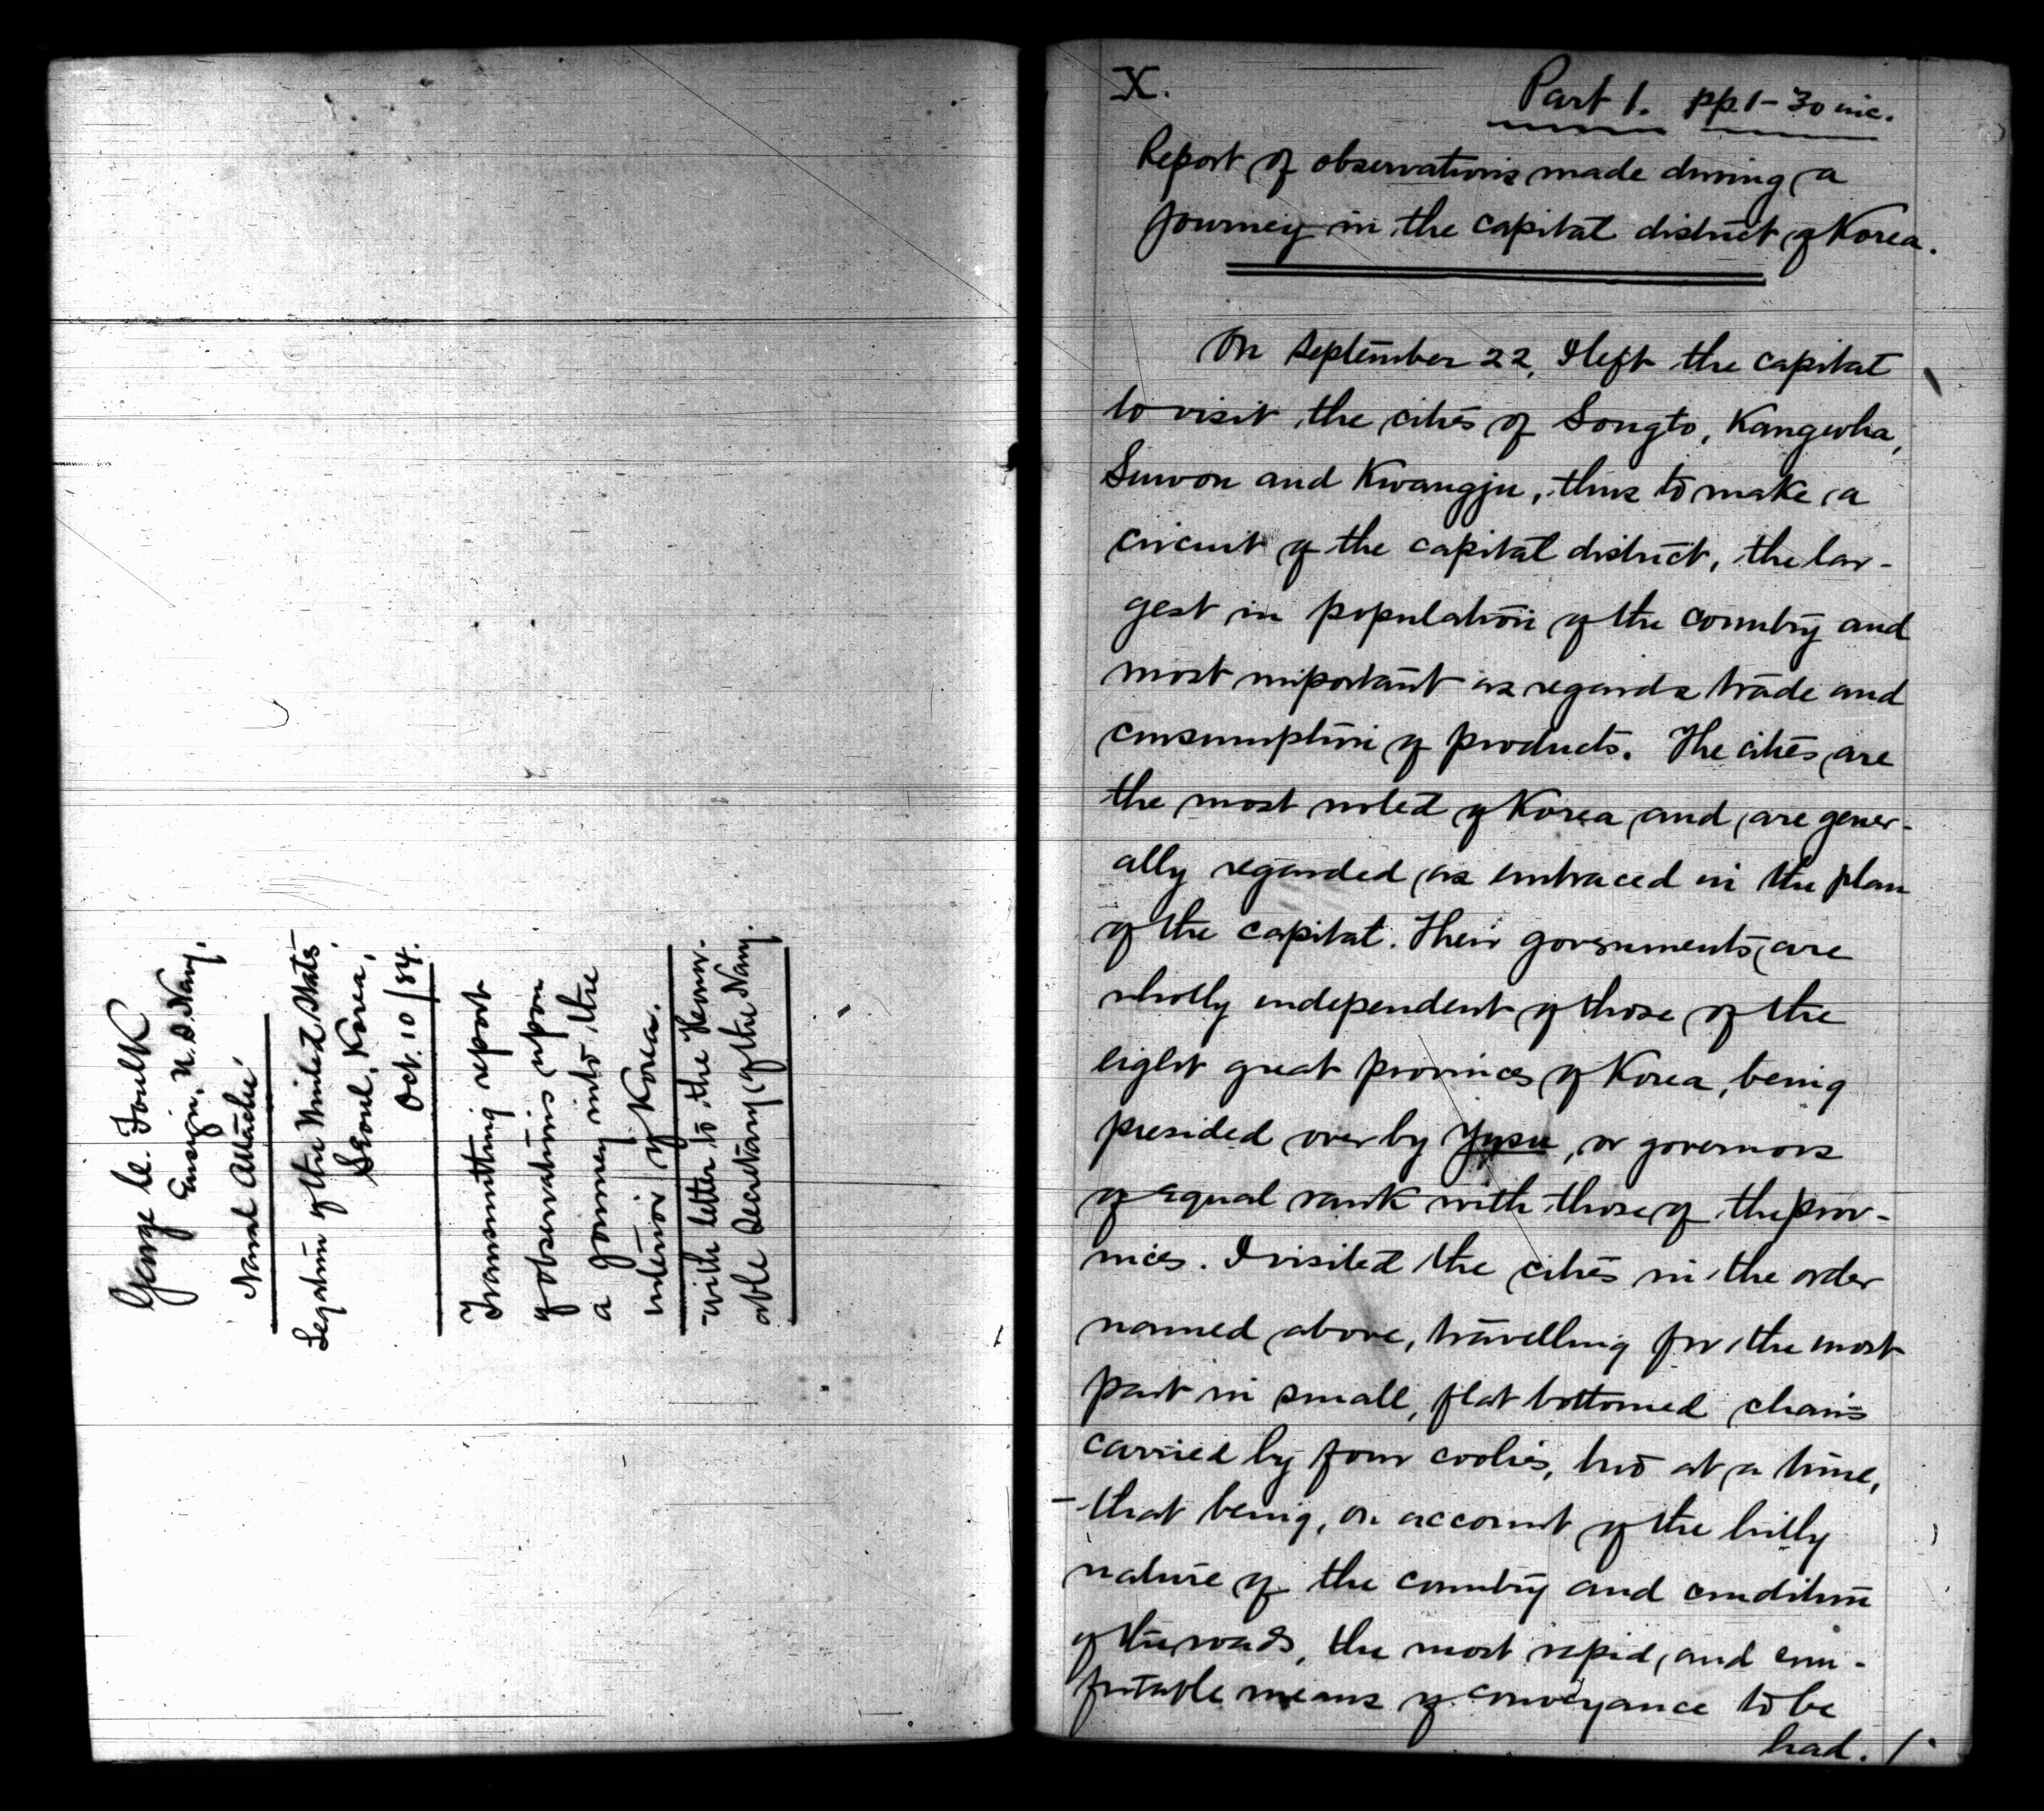 George C. Foulk
Ensign, U.S. Navy,
Naval Attaché
Legation of the United States,
Seoul, Korea,
Oct. 10/84.
Transmitting report
of observations upon
a journey into the
interior of Korea.
with letter to the Honor-
able Secretary of the Navy.
X.
Part 1. pp. 1-30 inc.
Report of observations made during a
journey in the capital district of Korea.
On September 22, I left the capital
to visit the cities of Songto, Kangwha,
Suwon and Kwangju, thus to make a
circuit of the capital district, the lar-
gest in population of the country and
most important as regards trade and
consumption of products. The cities are
the most noted of Korea and are gener-
ally regarded as embraced in the plan
of the capital. Their governments are
wholly independent of those of the
eight great provinces of Korea, being
presided over by Yusu, or governors
of equal rank with those of the prov-
inces. I visited the cities in the order
named above, travelling for the most
part in small, flat bottomed chairs
carried by four coolies, two at a time,
- that being, on account of the hilly
nature of the country and condition
of the roads, the most rapid and com-
fortable means of conveyance to be
had. 1.